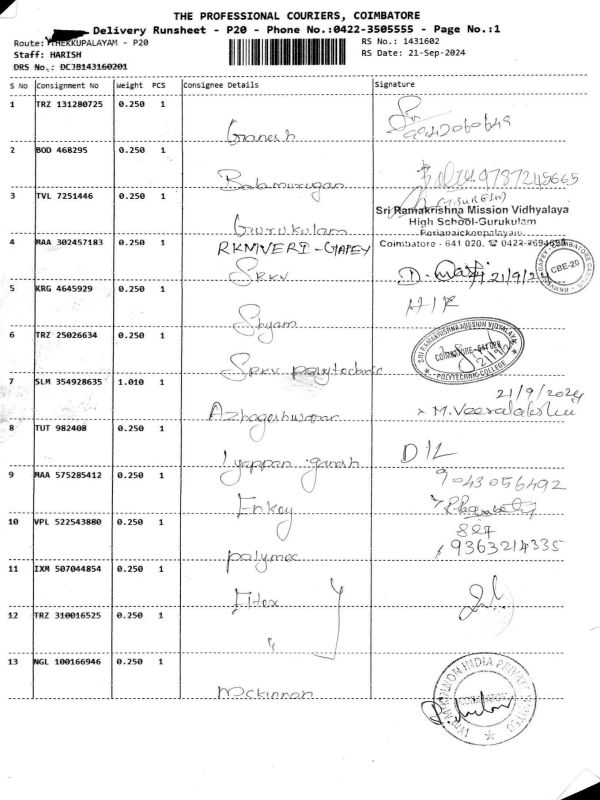 THE PROFESSIONAL COURIERS, COIMBATORE
Delivery Runsheet - P20 - Phone No.:0422-3505555 - Page No.:1
Route: THEKKUPALAYAM - P20
RS No.: 1431602
Staff: HARISH
RS Date: 21-Sep-2024
DRS No.: DCJB143160201
S No Consignment No Weight PCS Consignee Details Signature
1 TRZ 131280725 0.250 1
Ganesh
2 BOD 468295 0.250 1
Balamurugan 9787245665
3 TVL 7251446 0.250 1
(T.SURESH)
Sri Ramakrishna Mission Vidhyalaya
High School-Gurukulam
Gurukulam
Perianaickenpalayam,
4 MAA 302457183 0.250 1
RKMVERI - GAPEY
Coimbatore - 641 020. ☎ 0422-2694
CBE-20
SRKV
21/9/24
5 KRG 4645929 0.250 1
Shyam
6 TRZ 25026634 0.250 1
SRI RAMAKRISHNA MISSION VIDYALAYA
COIMBATORE - 641 020
POLYTECHNIC COLLEGE
SRKV polytechnic
7 SLM 354928635 1.010 1
21/9/2024
Azhageshwaran
8 TUT 982408 0.250 1
Iyappan ganesh
D/L
9 MAA 575285412 0.250 1
9043056492
Enkay
10 VPL 522543880 0.250 1
9363214335
polymec
11 IXM 507044854 0.250 1
Eltex
12 TRZ 310016525 0.250 1
"
13 NGL 100166946 0.250 1
Mckinnon
MCKINNON INDIA PRIVATE LIMITED
COIMBATORE